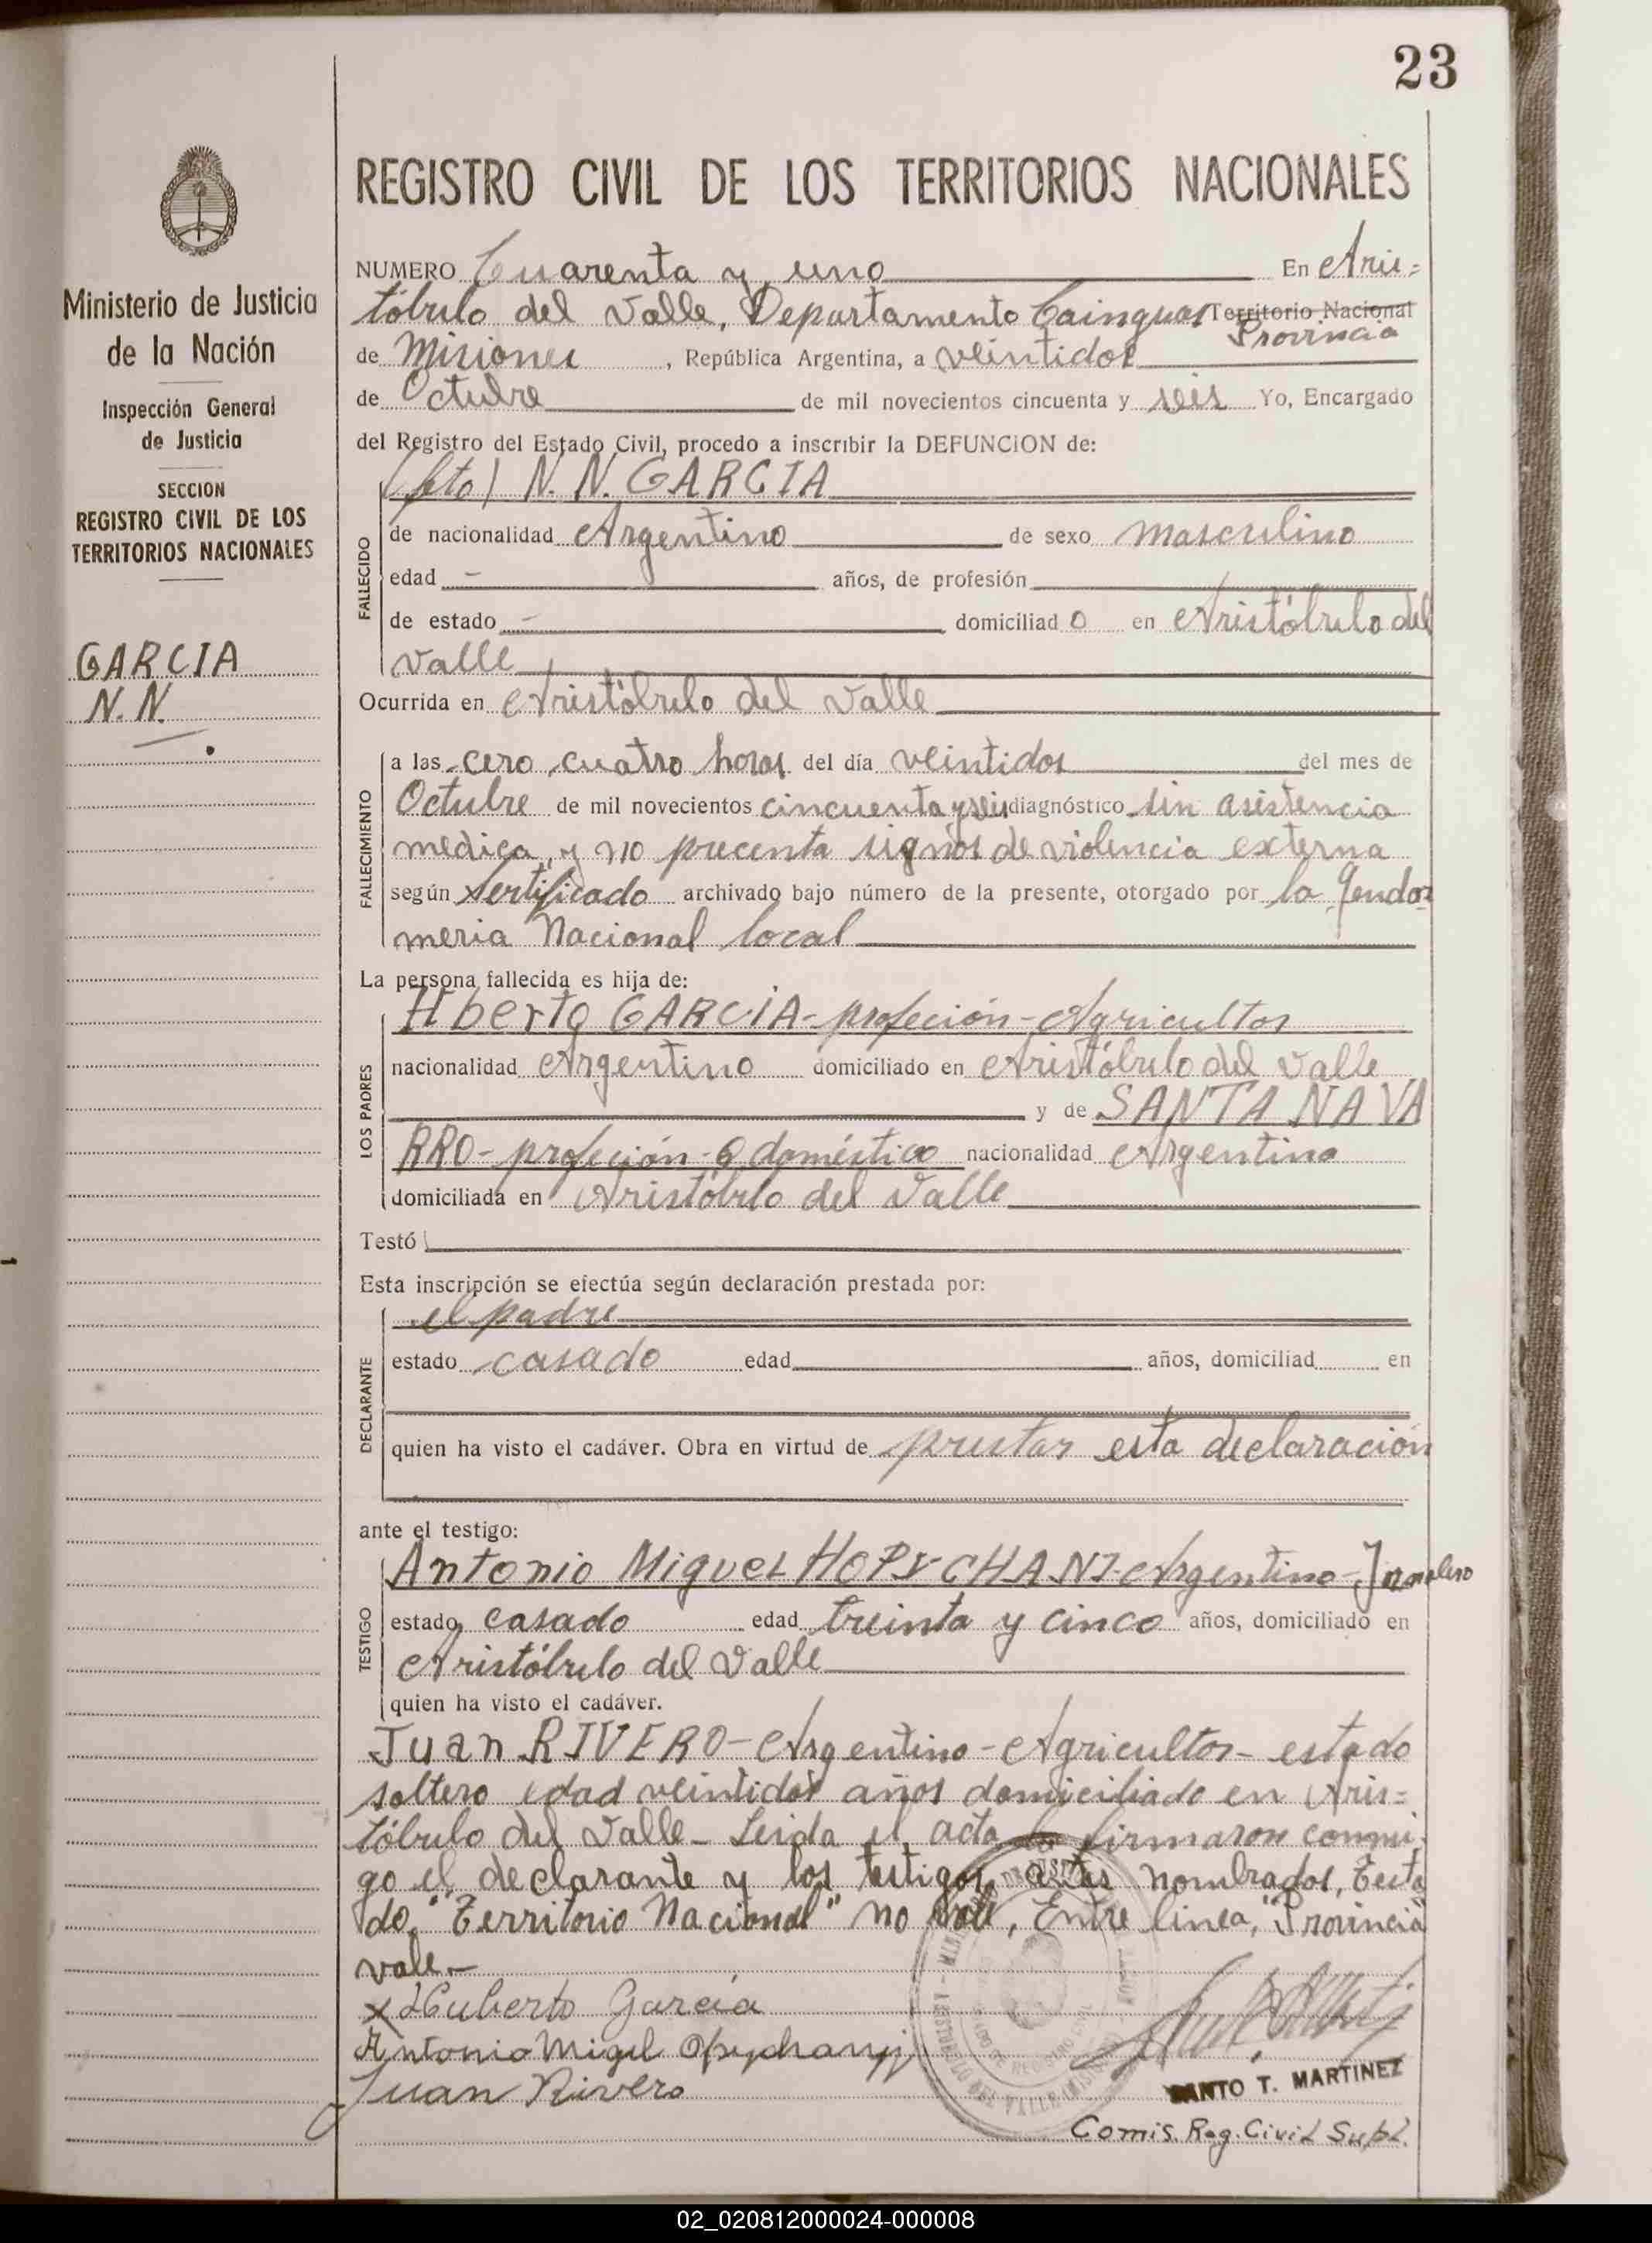 23
Ministerio de Justicia
de la Nación
Inspección General
de Justicia
SECCION
REGISTRO CIVIL DE LOS
TERRITORIOS NACIONALES
GARCIA
N.N.
REGISTRO CIVIL DE LOS TERRITORIOS NACIONALES
NUMERO Cuarenta y uno En Aris=
tóbulo del Valle, Departamento Cainguas Territorio Nacional
Provincia
de Misiones, República Argentina, a veintidos
de Octubre de mil novecientos cincuenta y seis Yo, Encargado
del Registro del Estado Civil, procedo a inscribir la DEFUNCION de:
(feto) N. N. GARCIA
FALLECIDO
de nacionalidad Argentino de sexo masculino
edad - años, de profesión
de estado - domiciliad o en Aristóbulo del
Valle
Ocurrida en Aristóbulo del Valle
FALLECIMIENTO
a las cero cuatro horas del día veintidos del mes de
Octubre de mil novecientos cincuenta y seis diagnóstico sin asistencia
medica, y no precenta signos de violencia externa
según sertificado archivado bajo número de la presente, otorgado por la Gendar
meria Nacional local
La persona fallecida es hija de:
LOS PADRES
Hberto GARCIA - profeción - Agricultor
nacionalidad Argentino domiciliado en Aristóbulo del Valle
y de SANTA NAVA
RRO - profeción - Q doméstico nacionalidad Argentina
domiciliada en Aristóbulo del Valle
Testó
Esta inscripción se efectúa según declaración prestada por:
DECLARANTE
el padre
estado casado edad años, domiciliad en
quien ha visto el cadáver. Obra en virtud de prestar esta declaración
ante el testigo:
TESTIGO
Antonio Miguel - Argentino - Jornalero
estado casado edad treinta y cinco años, domiciliado en
Aristóbulo del Valle
quien ha visto el cadáver.
Juan RIVERO - Argentino - Agricultor - estado
soltero edad veintidos años domiciliado en Aris=
tóbulo del Valle - Leida el acta la firmaron conmi
go el declarante y los testigos antes nombrados, Testa
do, "Territorio Nacional" no vale, Entre linea, "Provincia"
vale -
x Huberto Garcia
Antonio Migel Opychanyj
Juan Rivero
SANTO T. MARTINEZ
Comis. Reg. Civil Supl.
02_020812000024-000008